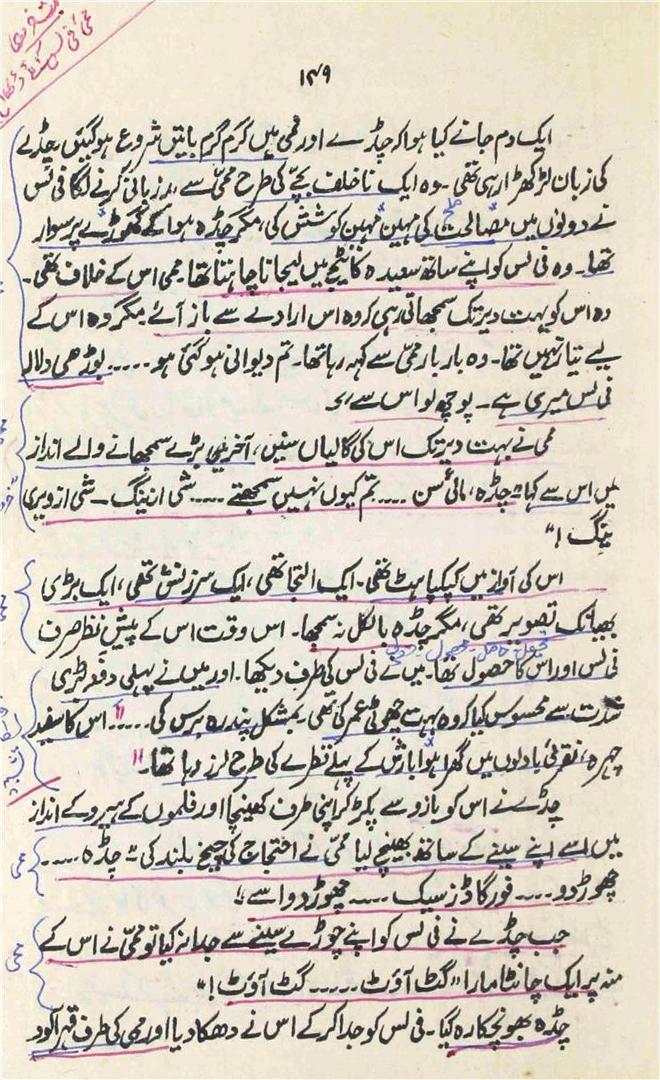 ۱۴۹
ایک دم جانے کیا ہوا کہ چڈے اور ممی میں گرم گرم باتیں شروع ہوگئیں چڈے
کی زبان لڑکھڑا رہی تھی۔ وہ ایک ناخلف بچے کی طرح ممی سے بدزبانی کرنے لگا فی لس
نے دونوں میں مصالحت کی مہین مہین کوشش کی، مگر چڈہ ہوا کے گھوڑے پر سوار
تھا۔ وہ فی لس کو اپنے ساتھ سعیدہ کاٹیج میں لیجانا چاہتا تھا۔ ممی اس کے خلاف تھی۔
وہ اس کو بہت دیر تک سمجھاتی رہی کہ وہ اس ارادے سے باز آئے مگر وہ اس کے
لیے تیار نہیں تھا۔ وہ بار بار ممی سے کہہ رہا تھا۔ تم دیوانی ہوگئی ہو ..... بوڑھی دلالہ
فی لس میری ہے۔ پوچھ لو اس سے،
ممی نے بہت دیر تک اس کی گالیاں سنیں، آخر میں بڑے سمجھانے والے انداز
میں اس سے کہا "چڈہ، مائی سن .... تم کیوں نہیں سمجھتے .... شی از ینگ۔ شی از ویری
ینگ!"
اس کی آواز میں کپکپاہٹ تھی۔ ایک التجا تھی، ایک سرزنش تھی، ایک بڑی
بھیانک تصویر تھی، مگر چڈہ بالکل نہ سمجھا۔ اس وقت اس کے پیش نظر صرف
فی لس اور اس کا حصول تھا۔ میں نے فی لس کی طرف دیکھا۔ اور میں نے پہلی دفعہ بڑی
شدت سے محسوس کیا کہ وہ بہت چھوٹی عمر کی تھی بمشکل پندرہ برس کی .... "اس کا سفید
چہرہ، نقرئی بادلوں میں گھرا ہوا بارش کے پہلے قطرے کی طرح لرز رہا تھا۔"
چڈے نے اس کو بازو سے پکڑ کر اپنی طرف کھینچا اور فلموں کے ہیرو کے انداز
میں اسے اپنے سینے کے ساتھ بھینچ لیا ممی نے احتجاج کی چیخ بلند کی "چڈہ .....
چھوڑ دو .... فور گاڈز سیک .... چھوڑ دو اسے"
جب چڈے نے فی لس کو اپنے چوڑے سینے سے جدا نہ کیا تو ممی نے اس کے
منہ پر ایک چانٹا مارا "گٹ آؤٹ ..... گٹ آؤٹ!"
چڈہ بھونچکا رہ گیا۔ فی لس کو جدا کرکے اس نے دھکا دیا اور ممی کی طرف قہر آلود